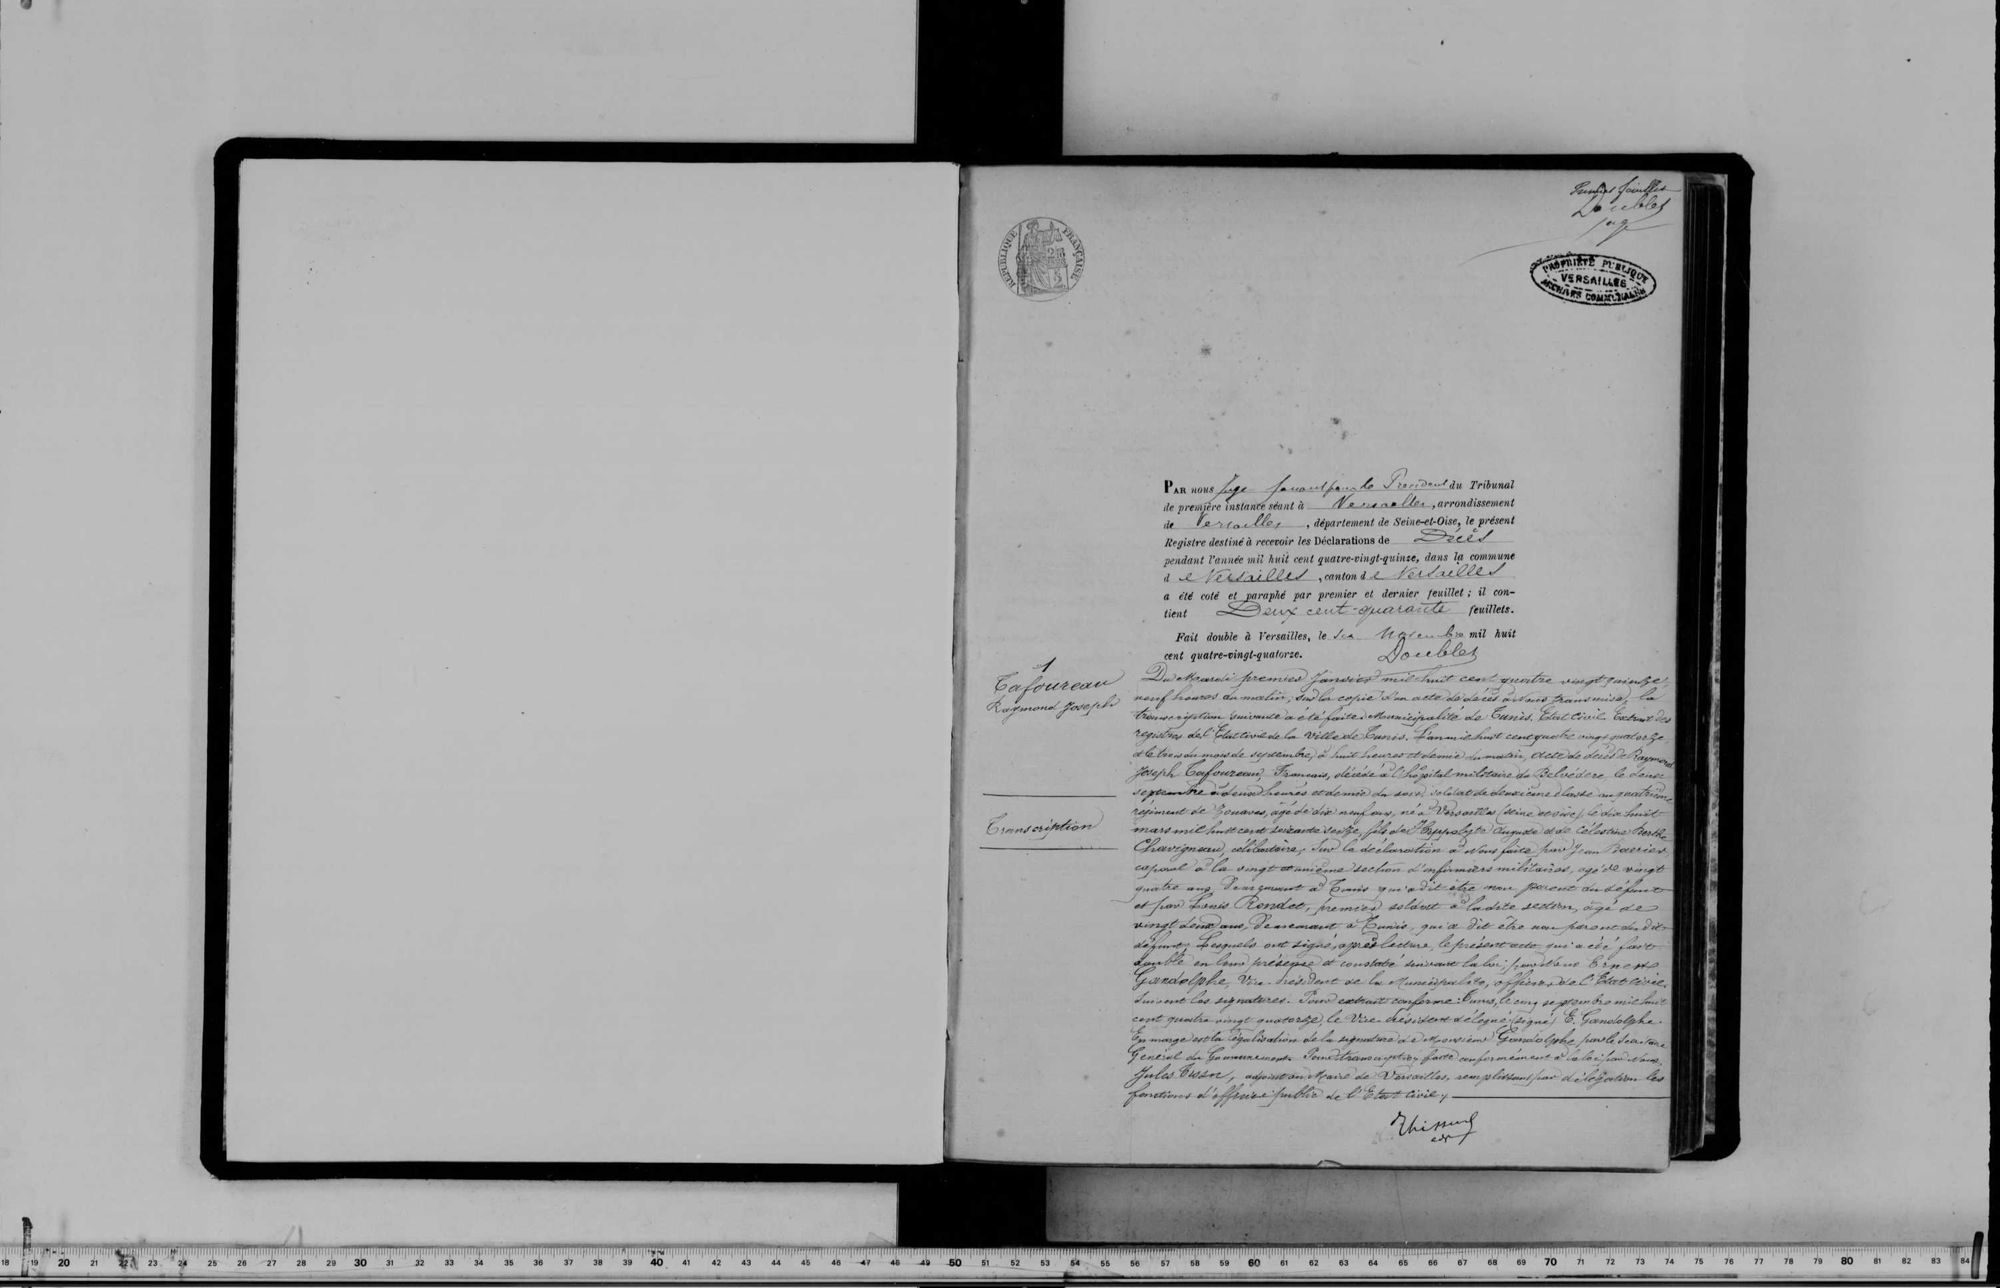 Premier feuillet
Doublet
juge
RÉPUBLIQUE FRANÇAISE
PROPRIÉTÉ PUBLIQUE
VERSAILLES
ARCHIVES COMMUNALES
PAR nous Juge pour le Président du Tribunal
de première instance séant à Versailles, arrondissement
de Versailles, département de Seine-et-Oise, le présent
Registre destiné à recevoir les Déclarations de Décès
pendant l'année mil huit cent quatre-vingt-quinze, dans la commune
de Versailles, canton de Versailles
a été coté et paraphé par premier et dernier feuillet ; il con-
tient Deux cent quarante feuillets.
Fait double à Versailles, le Novembre mil huit
cent quatre-vingt-quatorze. Doublet
1
Tafoureau
Raymond Joseph
Transcription
Du Mardi premier Janvier mil huit cent quatre vingt quinze,
neuf heures du matin, sur la copie d'un acte de décès à Nous transmise, la
transcription suivante a été faite. Municipalité de Tunis. Etat Civil. Extrait des
registres de l'Etat civil de la Ville de Tunis. L'an mil huit cent quatre vingt quatorze,
et le trois du mois de septembre, à huit heures et demie du matin, Acte de décès de Raymond
Joseph Tafoureau, Français, décédé à l'hôpital militaire du Belvédère le deux
septembre à deux heures et demie du soir, soldat de deuxième classe au quatrième
régiment de Zouaves, âgé de dix neuf ans, né à Versailles (Seine et Oise) le dix huit
mars mil huit cent soixante seize, fils de Hippolyte Auguste et de Célestine Berthe
Chavigneau, célibataire; Sur la déclaration à Nous faite par Jean Barrier,
caporal à la vingt et unième section d'infirmiers militaires, âgé de vingt
quatre ans, Demeurant à Tunis qui a dit être non parent du défunt
et par Louis Rondet, premier soldat à la dite section, âgé de
vingt deux ans, Demeurant à Tunis, qui a dit être non parent du dit
défunt; Lesquels ont signé, après lecture, le présent acte qui a été fait
double en leur présence et constaté suivant la loi, par Nous Ernest
Gandolphe, Vice-Président de la Municipalité, officier de l'Etat civil.
Suivent les signatures. Pour extrait conforme: Tunis, le cinq septembre mil huit
cent quatre vingt quatorze, le Vice-Président délégué (signé) E. Gandolphe.
En marge est la légalisation de la signature de Monsieur Gandolphe par le Secrétaire
Général du Gouvernement. Pour transcription faite conformément à la loi par Nous,
Jules adjoint au Maire de Versailles, remplissant par délégation les
fonctions d'officier public de l'Etat civil.
18 19 20 21 22 23 24 25 26 27 28 29 30 31 32 33 34 35 36 37 38 39 40 41 42 43 44 45 46 47 48 49 50 51 52 53 54 55 56 57 58 59 60 61 62 63 64 65 66 67 68 69 70 71 72 73 74 75 76 77 78 79 80 81 82 83 84